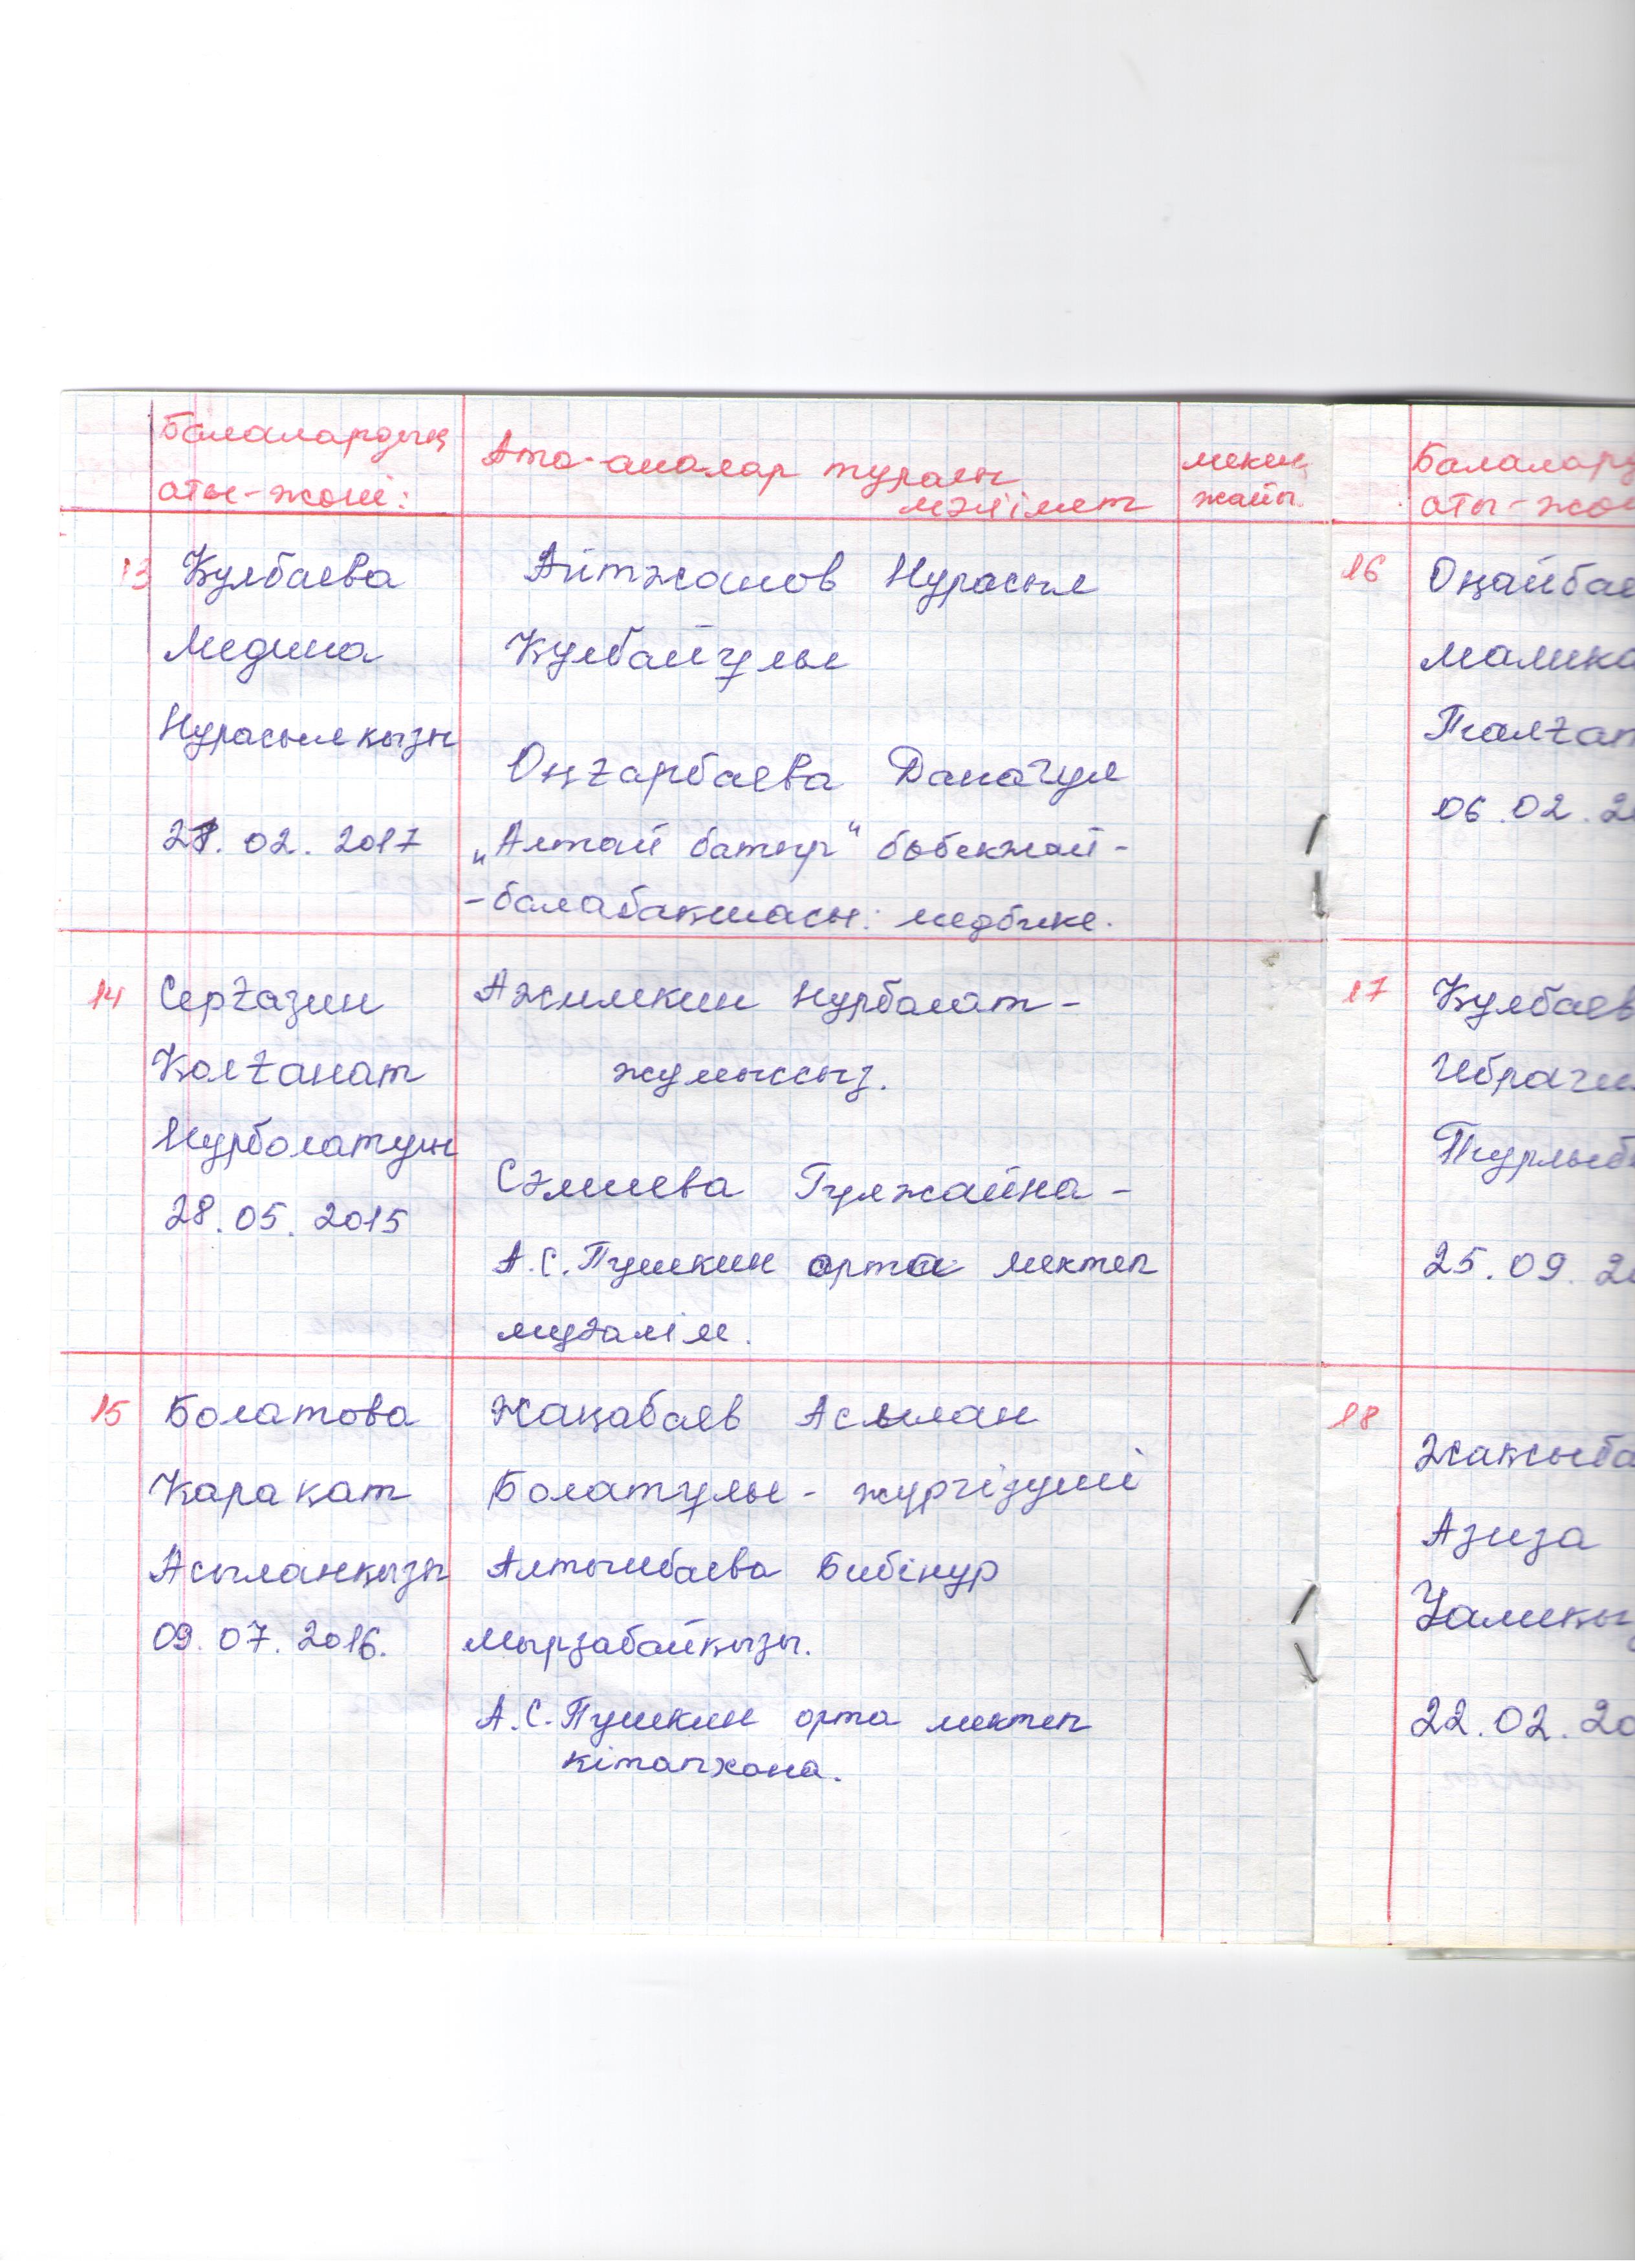 Балалардың
аты-жөні:
Ата-аналар туралы
мәлімет
мекен
жайы.
13
Құлбаева
Медина
Нурасылқызы
02. 2017
Айтжанов Нурасыл
Құлбайұлы
ОңғарбаеваДанагул
„Алтай батыр" бөбекжай-
-балабақшасы: медбике.
14
Серғазин
Қолғанат
Нұрболатұлы
28. 05. 2015
Ажимкин Нурболат-
жумыссыз.
Сәлиева Гулжайна-
А.С.Пушкин орта мектеп
мұғалім.
15
Болатова
Қарақат
Асыланқызы
09. 07. 2016.
Жаңабаев Асылан
Болатұлы - жүргізуші
Алтынбаева Бибінур
Мырзабайқызы.
А.С.Пушкин орта мектеп
кітапхана.
Балалард
аты-жөн
16
Оңайбае
Малика
Толғат
06. 02. 2
17
Құлбаев
Ибраги
Тұрлыб
25. 09. 2
18
Жақыба
Азиза
Уалиқы
22. 02. 20